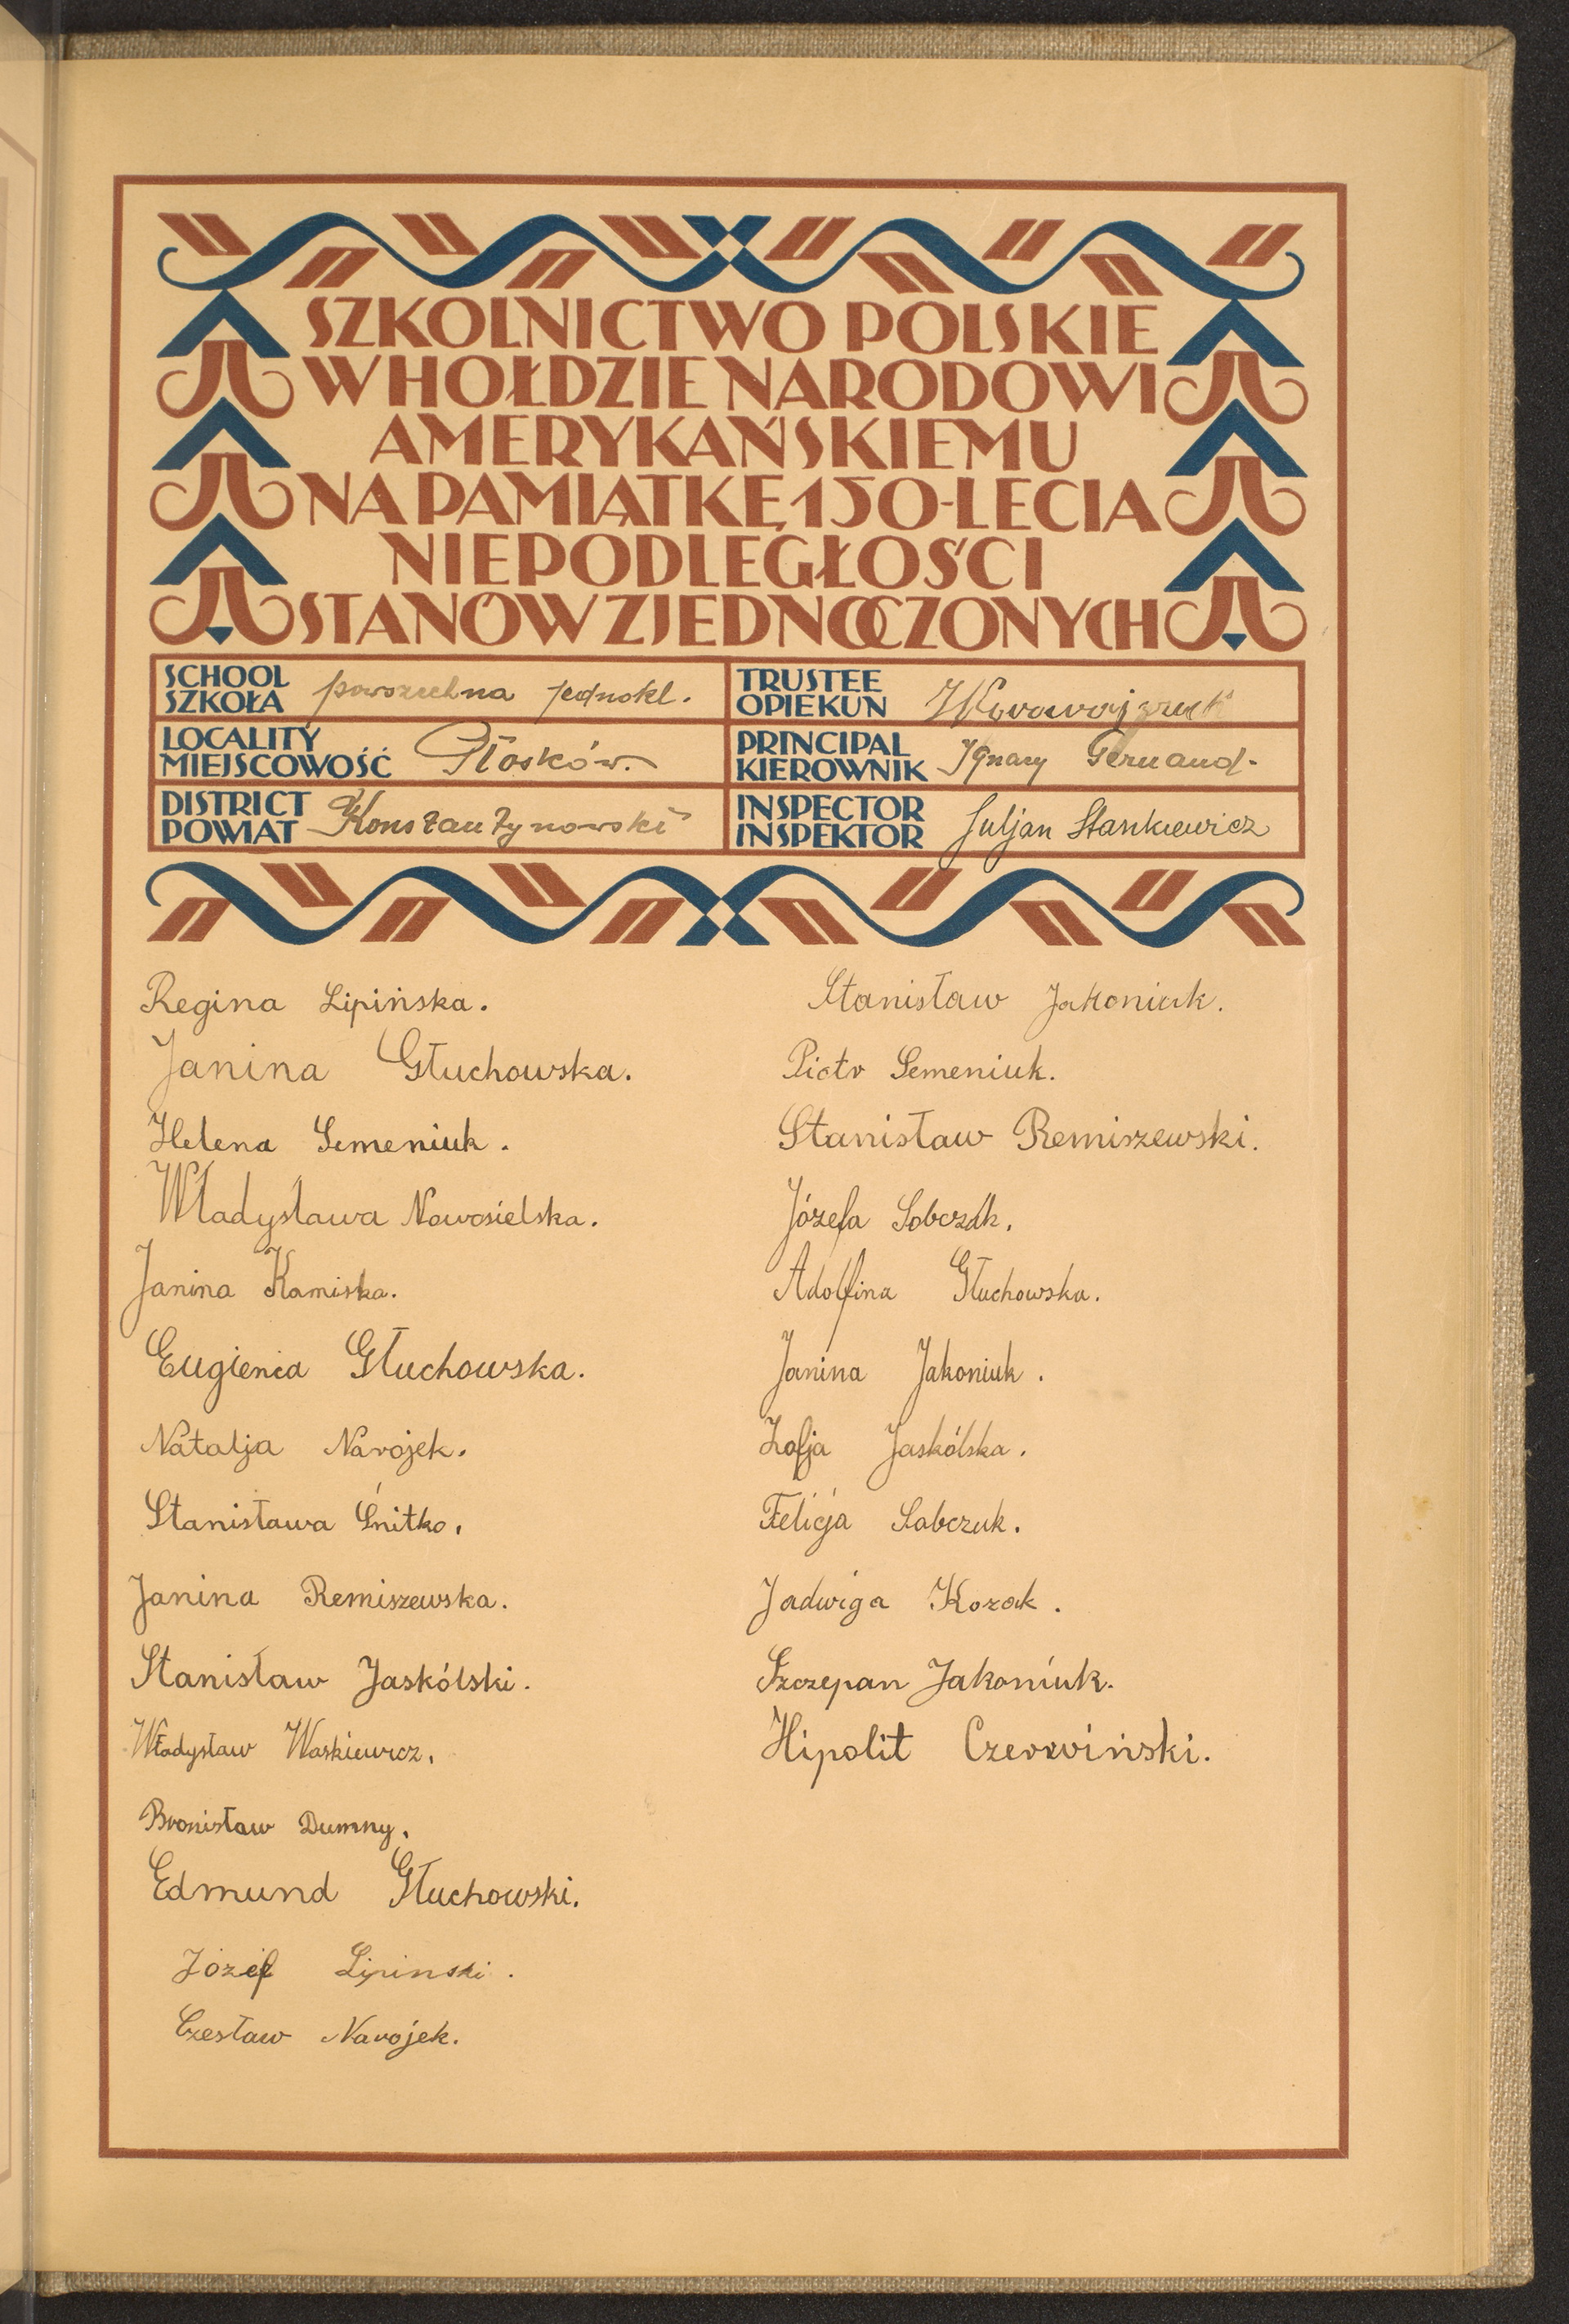 SZKOLNICTWO POLSKIE
W HOŁDZIE NARODOWI
AMERYKAŃSKIEMU
NA PAMIĄTKĘ 150-LECIA
NIEPODLEGŁOŚCI
STANÓW ZJEDNOCZONYCH
SCHOOL
SZKOŁA powszechna jednokl.
LOCALITY
MIEJSCOWOŚĆ Płosków.
DISTRICT
POWIAT Konstantynowski
TRUSTEE
OPIEKUN
PRINCIPAL
KIEROWNIK Ignacy Gernand.
INSPECTOR
INSPEKTOR Juljan Stankiewicz
Regina Lipińska.
Janina Głuchowska.
Helena Semeniuk.
Władysława Nowosielska.
Janina Kamiska.
Eugienia Głuchowska.
Natalja Narojek.
Stanisława Śnitko.
Janina Remiszewska.
Stanisław Jaskólski.
Władysław Waskiewicz.
Bronisław Dumny.
Edmund Głuchowski.
Józef Lipinski.
Czesław Narojek.
Stanisław Jakoniuk.
Piotr Semeniuk.
Stanisław Remiszewski.
Józefa Sobczuk.
Adolfina Głuchowska.
Janina Jakoniuk.
Zofja Jaskólska.
Felicja Sabczuk.
Jadwiga Kozak.
Szczepan Jakoniuk.
Hipolit Czerwiński.